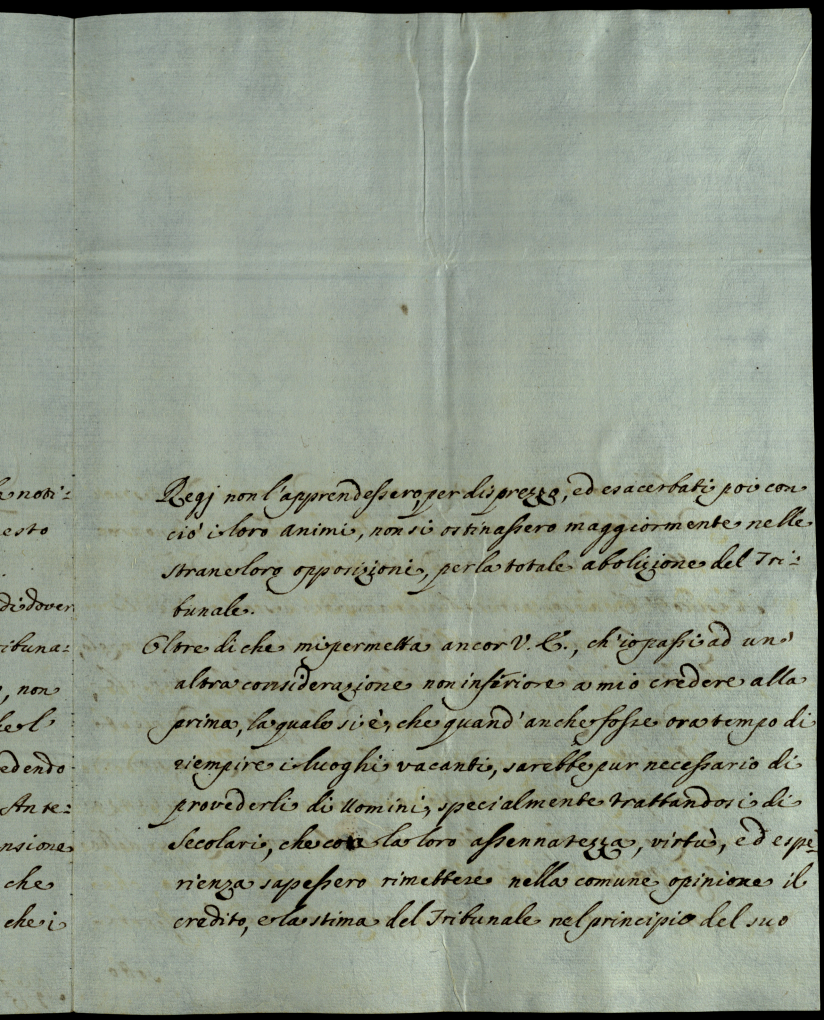 a noti=
esto
di dover
ribuna=
, non
edendo
Ante=
nsione
che
che i
Regj non l'apprendessero per disprezzo, ed esacerbati poi con
ciò i loro animi, non si ostinassero maggiormente nelle
strane loro opposizioni, per la totale abolizione del Tri=
bunale.
Oltre di che mi permetta ancor V. E., ch'io passi ad un'
altra considerazione non inferiore a mio credere alla
prima, la quale si è, che quand'anche fosse ora tempo di
riempire i luoghi vacanti, sarebbe pur necessario di
provederli di Uomini, specialmente trattandosi di
Secolari, che con la loro assennatezza, virtù, ed espe=
rienza sapessero rimettere nella comune opinione il
credito, e la stima del Tribunale nel principio del suo